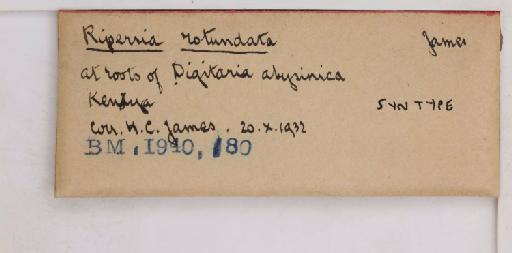 Ripersia rotundata James
at roots of Digitaria abyssinica
Kenya SYNTYPE
Coll. H.C. James. 20.X.1932
BM. 1940, 180